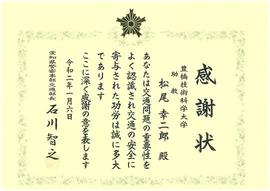 感謝状
豊橋技術科学大学
助教
松尾 幸二郎 殿
あなたは交通問題の重要性を
よく認識され交通の安全に
寄与された功労は誠に多大
であります
ここに深く感謝の意を表します
令和二年一月六日
愛知県警察本部交通部長
石川智之